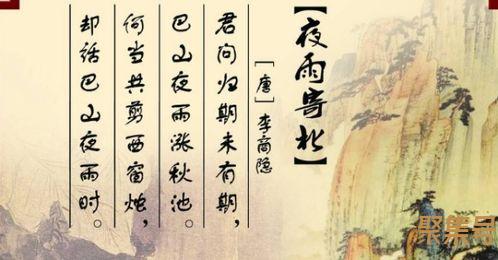 【夜雨寄北】
[唐] 李商隐
君问归期未有期，
巴山夜雨涨秋池。
何当共剪西窗烛，
却话巴山夜雨时。